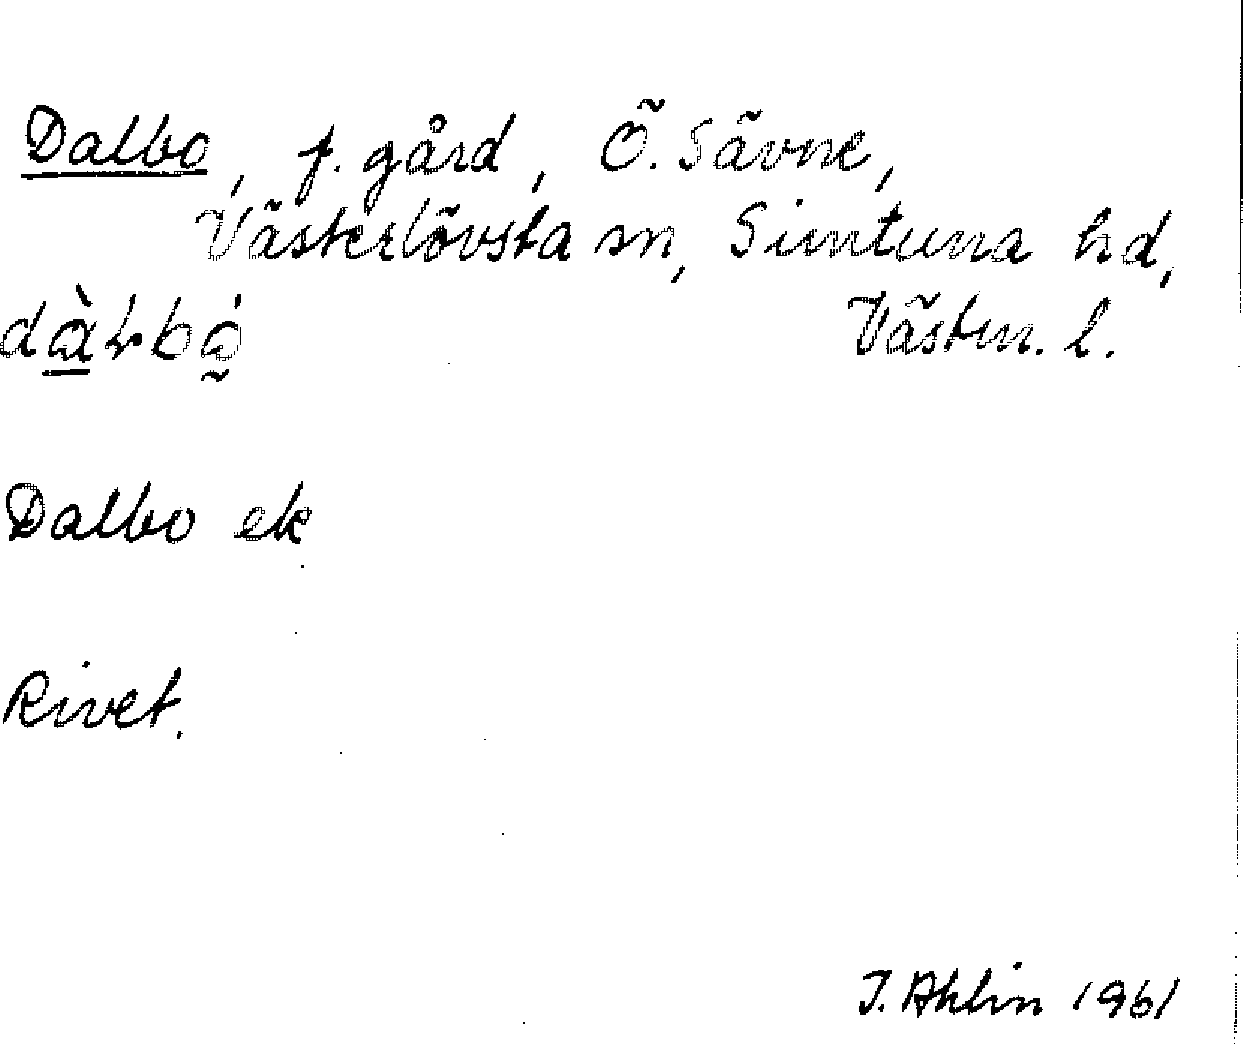 Dalbo, f. gård, Ö. Sävne,
Västerlövsta sn, Simtuna hd,
Västm. l.
Dalbo ek
Rivet.
I. Ahlin 1961